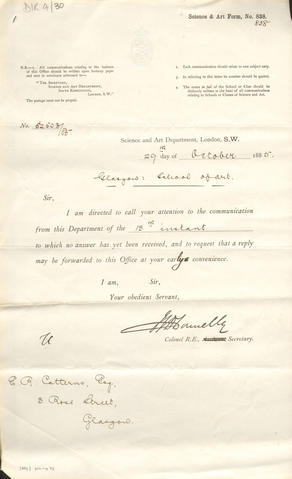 DIR 4/30
Science & Art Form, No. 838.
838
N.B.—1. All communications relating to the business
of this Office should be written upon foolscap paper
and sent in envelopes addressed to—
"THE SECRETARY,
SCIENCE AND ART DEPARTMENT,
SOUTH KENSINGTON,
LONDON, S.W."
The postage need not be prepaid.
2. Each communication should relate to one subject only.
3. In referring to this letter its number should be quoted.
4. The name in full of the School or Class should be
distinctly written at the head of all communications
relating to Schools or Classes of Science and Art.
No.
Science and Art Department, London, S.W.
29th day of October 1885.
Glasgow: School of Art.
Sir,
I am directed to call your attention to the communication
from this Department of the 13th instant
to which no answer has yet been received, and to request that a reply
may be forwarded to this Office at your early convenience.
I am, Sir,
Your obedient Servant,
Colonel R.E., Secretary.
E. R. Catterns, Esq.
3 Rose Street,
Glasgow.